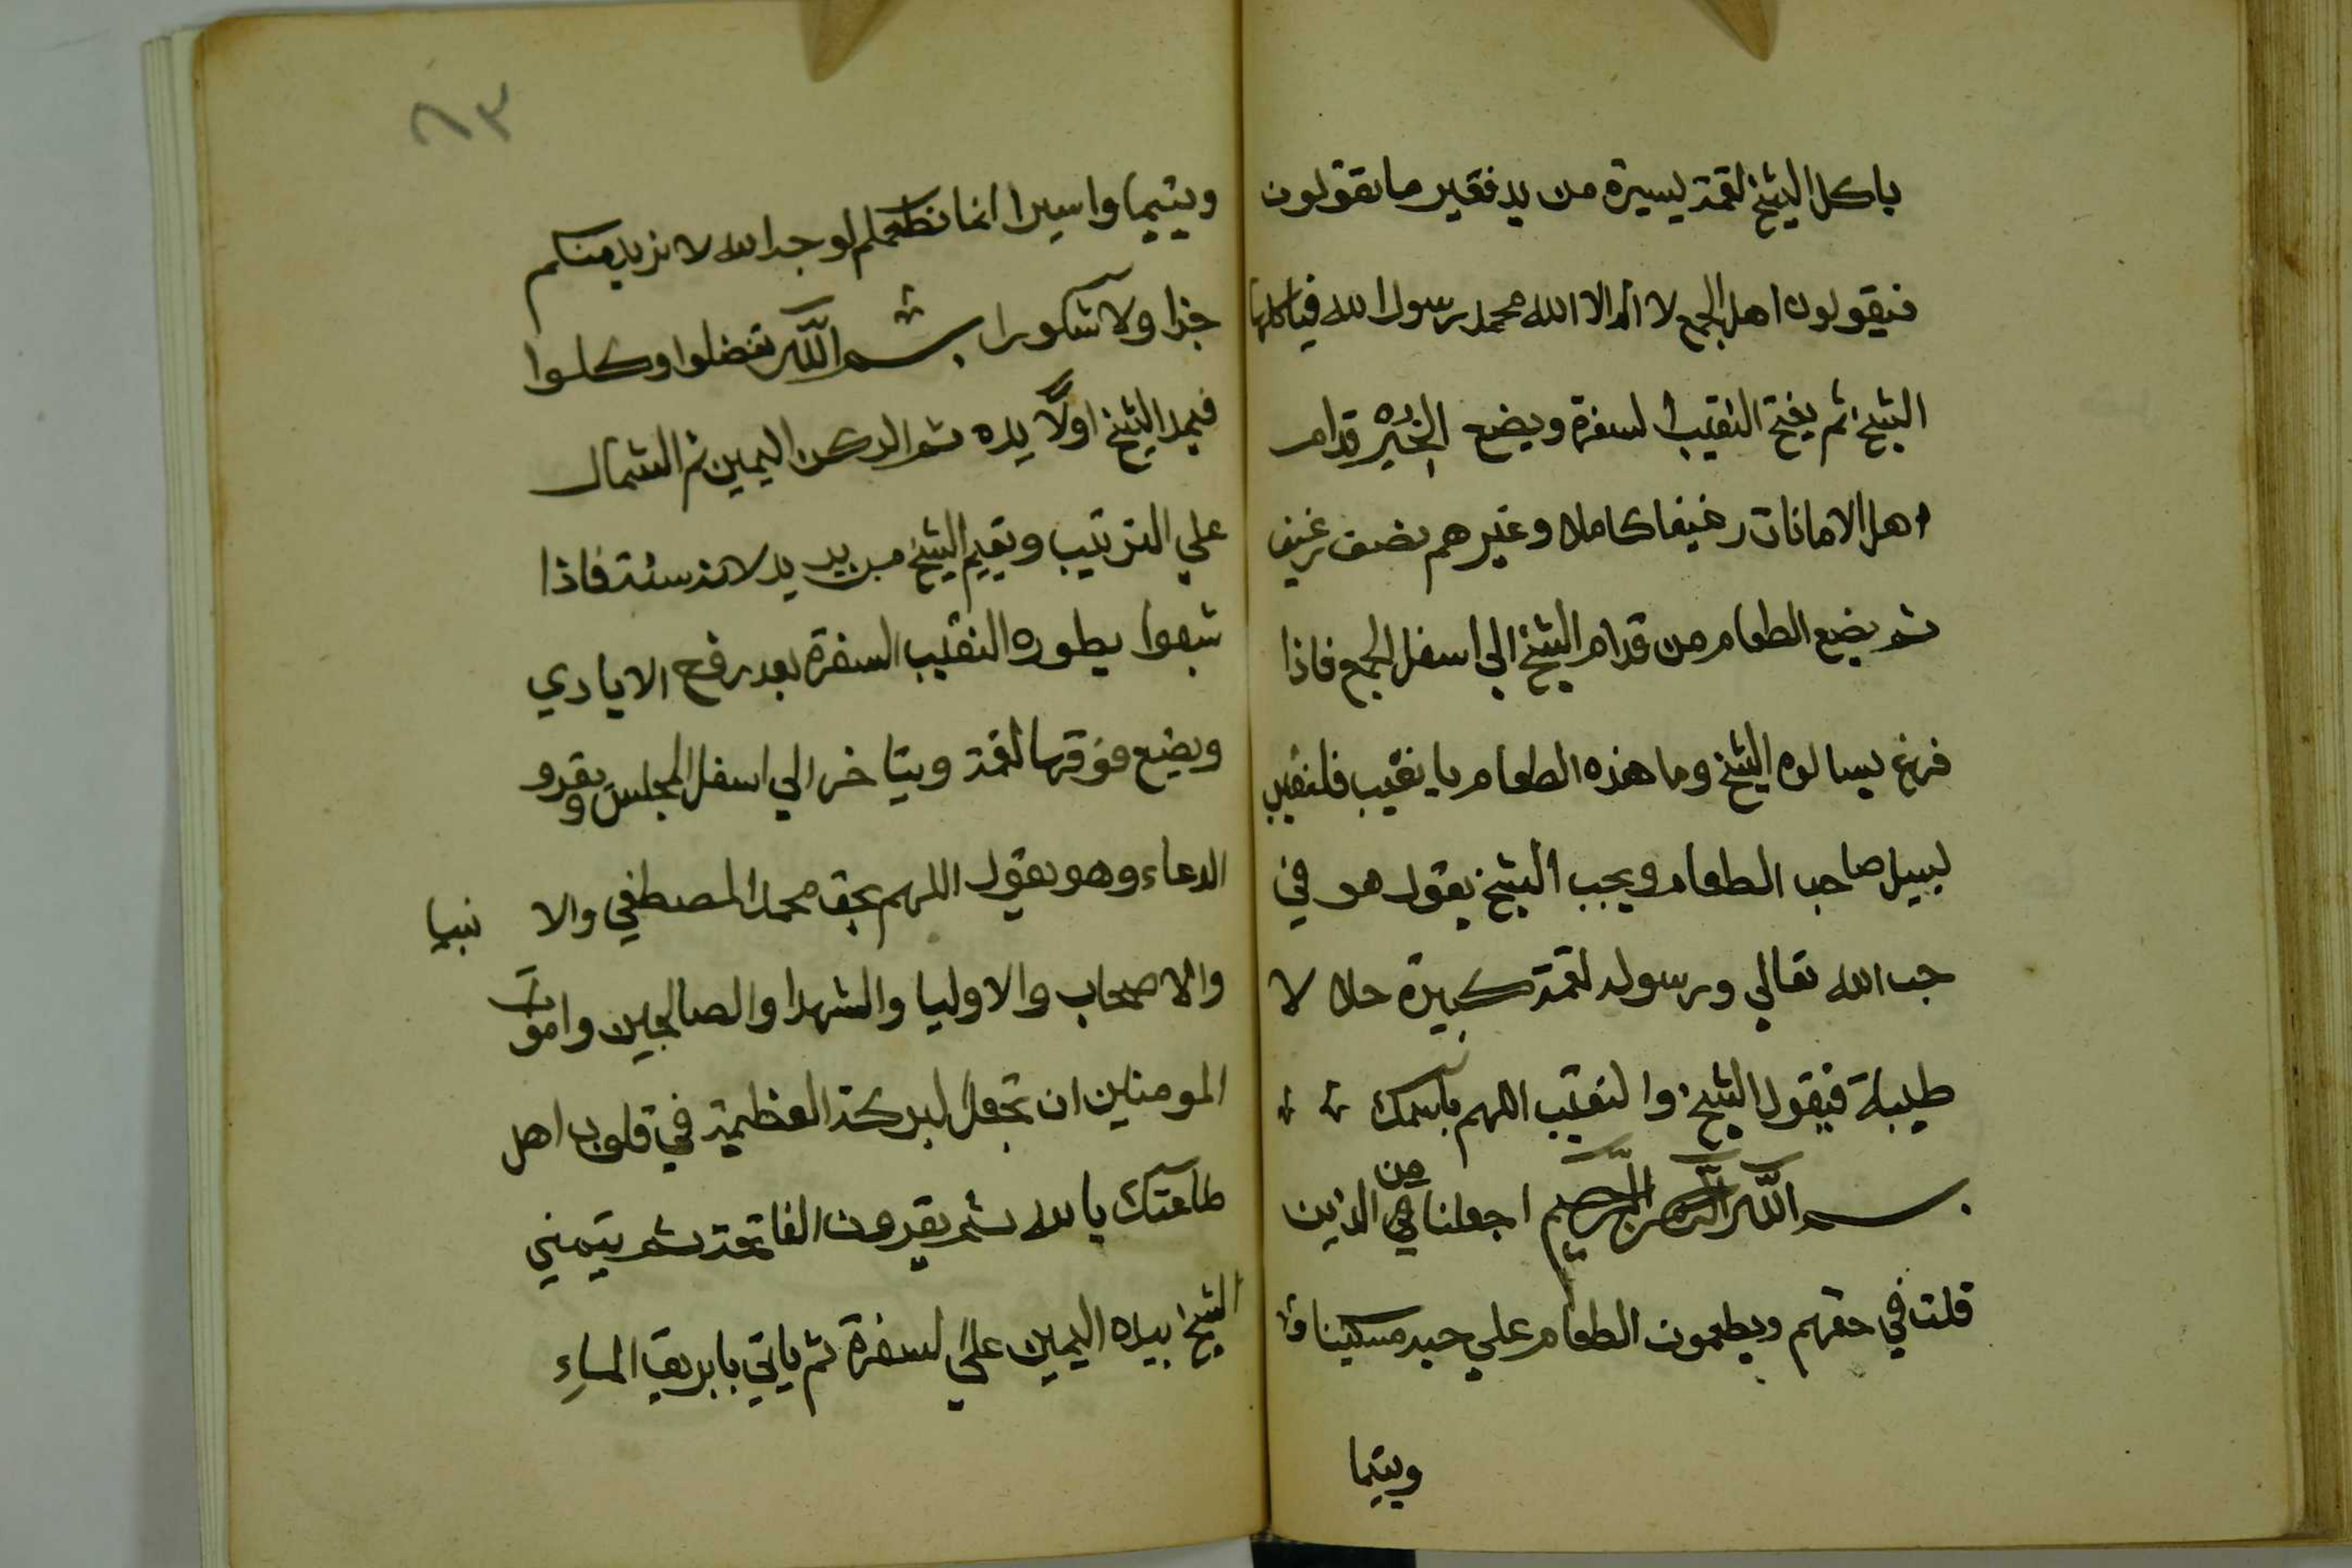 ياكل الشيخ لقمة يسيرة من يد فقير ما تقولون
فيقولون اهل الجمع لا اله الا الله محمد رسول الله فياكلها
الشيخ ثم يفتح النقيب السفرة ويضع الخبز قدام
اهل الامانات رغيفا كاملا وغيرهم نصف رغيف
ثم يضع الطعام من قدام الشيخ الي اسفل الجمع فاذا
فرغ يساله الشيخ وما هذه الطعام يا نقيب فلنقيب
ليسل صاحب الطعام ويجب الشيخ يقول هو في
حب الله تعالي ورسوله لقمة كبيرة حلالا
طيبة فيقول الشيخ والنقيب اللهم باسمك
بسم الله الرحمن الرحيم اجعلنا من الذين
قلت في حقهم ويطعمون الطعام علي حبه مسكينا
ويتيما
٨٣
ويتيما واسيرا انما نطعمكم لوجه الله لا نريد منكم
جزا ولا شكورا بسم الله تفضلوا وكلوا
فيمد الشيخ اولا يده ثم الركن اليمين ثم الشمال
علي الترتيب ويقيم الشيخ من يد يد لانه سنة فاذا
شبعوا يطوه النقيب السفرة بعد رفع الايادي
ويضع فوقها لقمة ويتاخر الي اسفل المجلس ويقرو
الدعاء وهو يقول اللهم بحق محمد المصطفي والا نبيا
والاصحاب والاوليا والشهدا والصالحين واموات
المومنين ان تجعل البركة العظيمة في قلوب اهل
طاعتك يا الله ثم يقرون الفاتحة ثم يتمني
الشيخ بيده اليمين علي السفرة ثم ياتي بابريق الماء